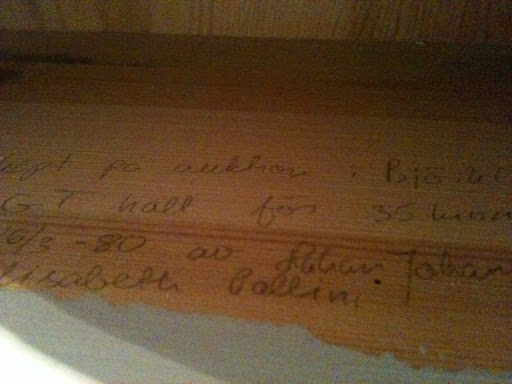 på auktion i Björkl
GT hall för 35 kron
16/3 -80 av Håkan Johan
lisabeth Pallini